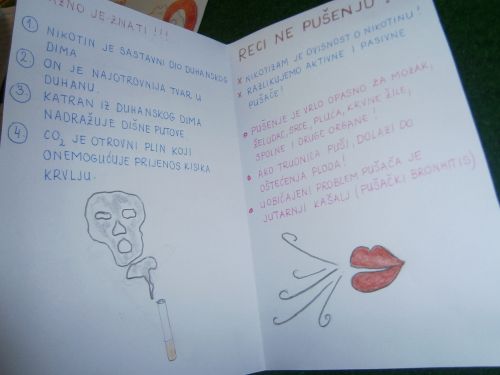 VAŽNO JE ZNATI !!!
1 NIKOTIN JE SASTAVNI DIO DUHANSKOG
DIMA
2 ON JE NAJOTROVNIJA TVAR U
DUHANU.
3 KATRAN IZ DUHANSKOG DIMA
NADRAŽUJE DIŠNE PUTOVE.
4 CO2 JE OTROVNI PLIN KOJI
ONEMOGUĆUJE PRIJENOS KISIKA
KRVLJU.
RECI NE PUŠENJU !
x NIKOTIZAM JE OVISNOST O NIKOTINU!
x RAZLIKUJEMO AKTIVNE I PASIVNE
PUŠAČE!
• PUŠENJE JE VRLO OPASNO ZA MOZAK,
ŽELUDAC, SRCE, PLUĆA, KRVNE ŽILE,
SPOLNE I DRUGE ORGANE!
• AKO TRUDNICA PUŠI, DOLAZI DO
OŠTEĆENJA PLODA!
• UOBIČAJENI PROBLEM PUŠAČA JE
JUTARNJI KAŠALJ (PUŠAČKI BRONHITIS)